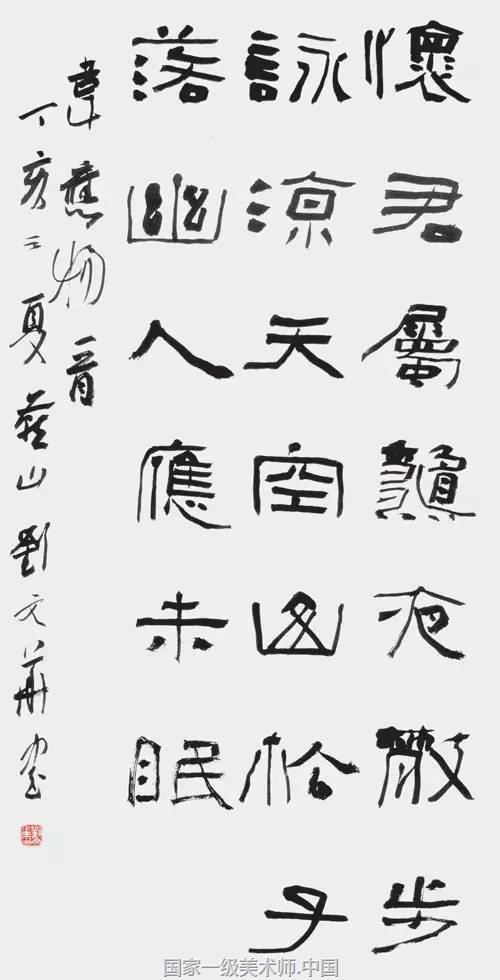 懷君屬龝夜散步
詠涼天空山松子
落幽人應未眠
韋應物
丁亥之夏燕山劉文華書
国家一级美术师.中国